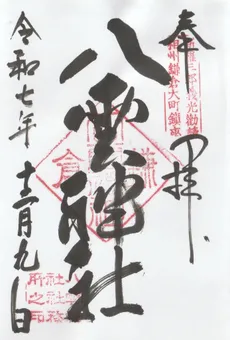 奉拝
新羅三郎義光勧請
相州鎌倉大町鎮座
八雲神社
鎌倉
八雲
社務
所之印
令和七年十二月九日